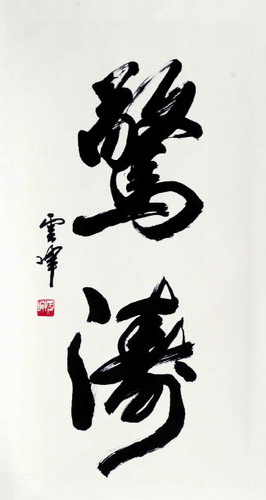 驚濤
雲峰